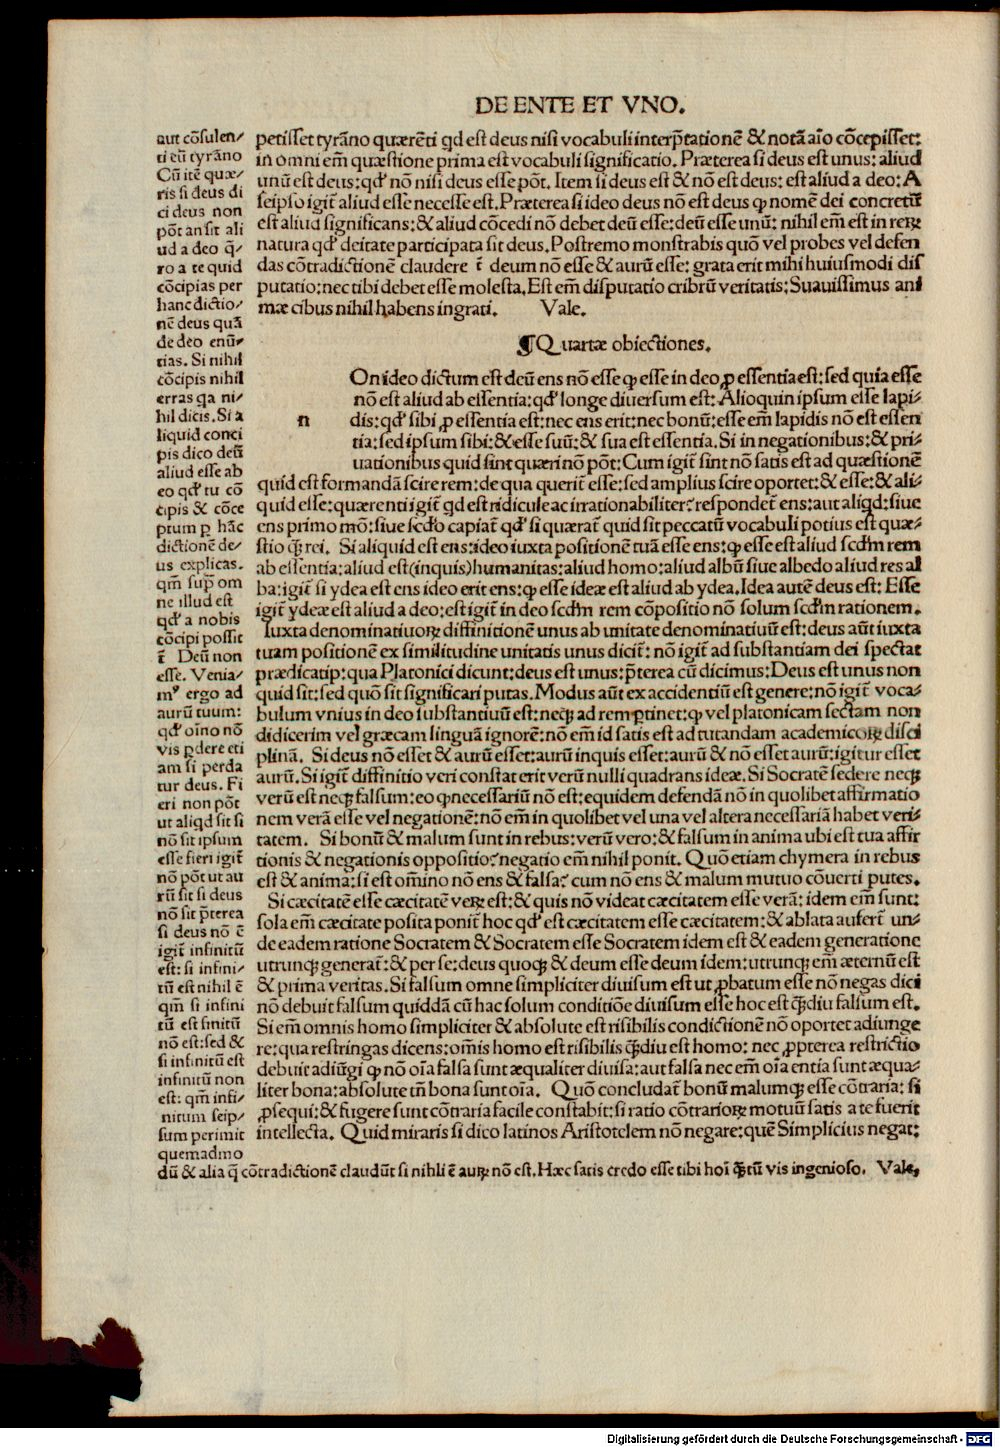 DE ENTE ET VNO.
aut cōsulen/
ti eū tyrāno
Cū itē quæ/
ris si deus di
ci deus non
pōt an sit ali
ud a deo q̄/
ro a te quid
cōcipias per
hanc dictio/
nē deus quā
de deo enū/
tias. Si nihil
cōcipis nihil
erras qa ni/
hil dicis. Si a
liquid conci
pis dico deū
aliud esse ab
eo qđ tu cō
cipis & cōce
ptum p hāc
dictionē de/
us explicas.
qm̄ sup om
ne illud est
qđ a nobis
cōcipi possit
ī Deū non
esse. Venia/
mꝰ ergo ad
aurū tuum:
qđ oīno nō
vis pdere eti
am si perda
tur deus. Fi
eri non pōt
ut aliqd sit si
nō sit ipsum
esse fieri igiť
nō pōt ut au
rū sit si deus
nō sit p̄terea
si deus nō ē
igiť infinitū
est: si infini/
tū est nihil ē
qm̄ si infini
tū est finitū
nō est: sed &
si infinitū est
infinitū non
est: qm̄ infi/
nitum seip/
sum perimit
quemadmo
petisset tyrāno quærēti qd est deus nisi vocabuli interp̄tationē & notā aīo cōcepisset:
in omni em̄ quæstione prima est vocabuli significatio. Præterea si deus est unus: aliud
unū est deus: qđ nō nisi deus esse pōt. Item si deus est & nō est deus: est aliud a deo: A
seipso igiť aliud esse necesse est. Præterea si ideo deus nō est deus ꝙ nomē dei concretū
est aliud significans: & aliud cōcedi nō debet deū esse: deū esse unū: nihil em̄ est in reꝝ
natura qđ deitate participata sit deus. Postremo monstrabis quō vel probes vel defen
das cōtradictionē claudere ī deum nō esse & aurū esse: grata erit mihi huiusmodi dis
putatio: nec tibi debet esse molesta. Est em̄ disputatio cribrū veritatis: Suauissimus ani
mæ cibus nihil habens ingrati. Vale.
¶ Quartæ obiectiones.
n
On ideo dictum est deū ens nō esse ꝙ esse in deo ꝓ essentia est: sed quia esse
nō est aliud ab essentia: qđ longe diuersum est: Alioquin ipsum esse lapi-
dis: qđ sibi ꝓ essentia est: nec ens erit: nec bonū: esse em̄ lapidis nō est essen
tia: sed ipsum sibi: & esse suū: & sua est essentia. Si in negationibus: & pri-
uationibus quid sint quæri nō pōt: Cum igiť sint nō satis est ad quæstionē
quid est formandā scire rem: de qua queriť esse: sed amplius scire oportet: & esse: & ali-
quid esse: quærenti igiť qd est ridicule ac irrationabiliter: respondeť ens: aut aliqd: siue
ens primo mō: siue scđo capiať qđ si quærať quid sit peccatū vocabuli potius est quæ-
stio q̄ꝫ rei. Si aliquid est ens: ideo iuxta positionē tuā esse ens: ꝙ esse est aliud scđm rem
ab essentia: aliud est (inquis) humanitas: aliud homo: aliud albū siue albedo aliud res al
ba: igiť si ydea est ens ideo erit ens: ꝙ esse ideæ est aliud ab ydea. Idea autē deus est: Esse
igiť ydeæ est aliud a deo: est igiť in deo scđm rem cōpositio nō solum scđm rationem.
Iuxta denominatiuoꝝ diffinitionē unus ab unitate denominatiuū est: deus aūt iuxta
tuam positionē ex similitudine unitatis unus diciť: nō igiť ad substantiam dei spectat
prædicatip: qua Platonici dicunt: deus est unus: p̄terea cū dicimus: Deus est unus non
quid sit: sed quō sit significari putas. Modus aūt ex accidentiū est genere: nō igiť voca-
bulum vnius in deo substantiuū est: neqꝫ ad rem ptinet: ꝙ vel platonicam sectam non
didicerim vel græcam linguā ignorē: nō em̄ id satis est ad tutandam academicoꝝ disci
plinā. Si deus nō esset & aurū esset: aurū inquis esset: aurū & nō esset aurū: igitur esset
aurū. Si igiť diffinitio veri constat erit verū nulli quadrans ideæ. Si Socratē sedere neqꝫ
verū est neqꝫ falsum: eo ꝙ necessariū nō est: equidem defendā nō in quolibet affirmatio
nem verā esse vel negationē: nō em̄ in quolibet vel una vel altera necessariā habet veri-
tatem. Si bonū & malum sunt in rebus: verū vero: & falsum in anima ubi est tua affir
tionis & negationis oppositio? negatio em̄ nihil ponit. Quō etiam chymera in rebus
est & anima: si est om̄ino nō ens & falsa? cum nō ens & malum mutuo cōuerti putes.
Si cæcitatē esse cæcitatē veꝝ est: & quis nō videat cæcitatem esse verā: idem em̄ sunt:
sola em̄ cæcitate posita poniť hoc qđ est cæcitatem esse cæcitatem: & ablata auferť un-
de eadem ratione Socratem & Socratem esse Socratem idem est & eadem generatione
utrunqꝫ generať: & per se: deus quoqꝫ & deum esse deum idem: utrunqꝫ em̄ æternū est
& prima veritas. Si falsum omne simpliciter diuisum est ut ꝓbatum esse nō negas dici
nō debuit falsum quiddā cū hac solum conditiōe diuisum esse hoc est q̄ꝫdiu falsum est.
Si em̄ omnis homo simpliciter & absolute est risibilis condictionē nō oportet adiunge
re: qua restringas dicens: om̄is homo est risibilis q̄ꝫdiu est homo: nec ꝓpterea restrictio
debuit adiūgi ꝙ nō oīa falsa sunt æqualiter diuisa: aut falsa nec em̄ oīa entia sunt æqua-
liter bona: absolute tn̄ bona sunt oīa. Quō concludať bonū malumqꝫ esse cōtraria: si
ꝓsequi: & fugere sunt cōtraria facile constabit: si ratio cōtrarioꝝ motuū satis a te fuerit
intellecta. Quid miraris si dico latinos Aristotelem nō negare: quē Simplicius negat:
dū & alia q̄ cōtradictionē claudūt si nihli ē auꝝ nō est. Hæc satis credo esse tibi hoī q̄ꝫtū vis ingenioso. Vale,
Digitalisierung gefördert durch die Deutsche Forschungsgemeinschaft - DFG